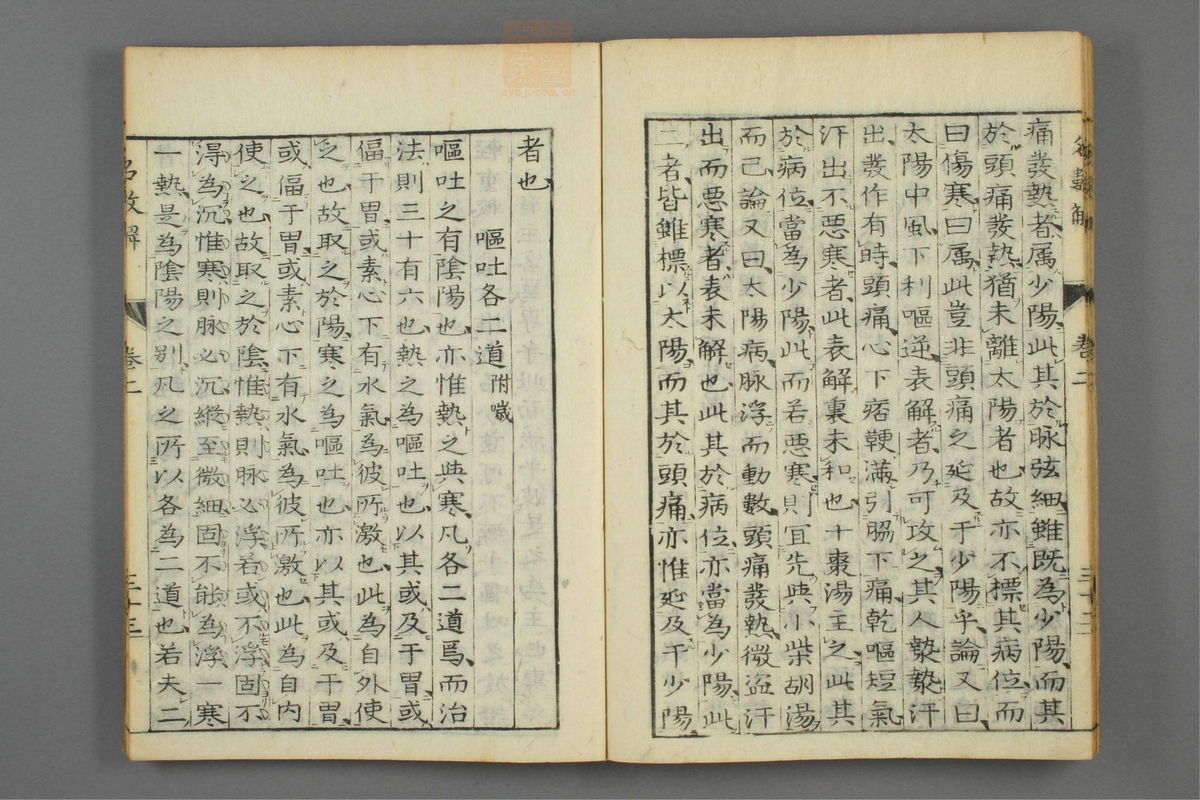 痛發熱者属少陽此其於脉弦細雖既為少陽而其
於頭痛發熱猶未離太陽者也故亦不標其病位而
曰傷寒曰属此豈非頭痛之延及于少陽乎論又曰
太陽中風下利嘔逆表解者乃可攻之其人漐漐汗
出發作有時頭痛心下痞鞕滿引脇下痛乾嘔短氣
汗出不惡寒者此表解裏未和也十棗湯主之此其
於病位當為少陽此而若惡寒則宜先與小柴胡湯
而已論又曰太陽病脉浮而動數頭痛發熱微盗汗
出而惡寒者表未解也此其於病位亦當為少陽此
二者皆雖標以太陽而其於頭痛亦惟延及于少陽
卷二
三十二
者也
嘔吐各二道附噦
嘔吐之有陰陽也亦惟熱之與寒凡各二道焉而治
法則三十有六也熱之為嘔吐也以其或及于胃或
偪于胃或素心下有水氣為彼所激也此為自外使
之也故取之於陽寒之為嘔吐也亦以其或及于胃
或偪于胃或素心下有水氣為彼所激也此為自内
使之也故取之於陰惟熱則脉必浮若或不浮固不
得為沉惟寒則脉必沉縱至微細固不能為浮一寒
一熱是為陰陽之別凡之所以各為二道也若夫二
名數解
卷二
三十三